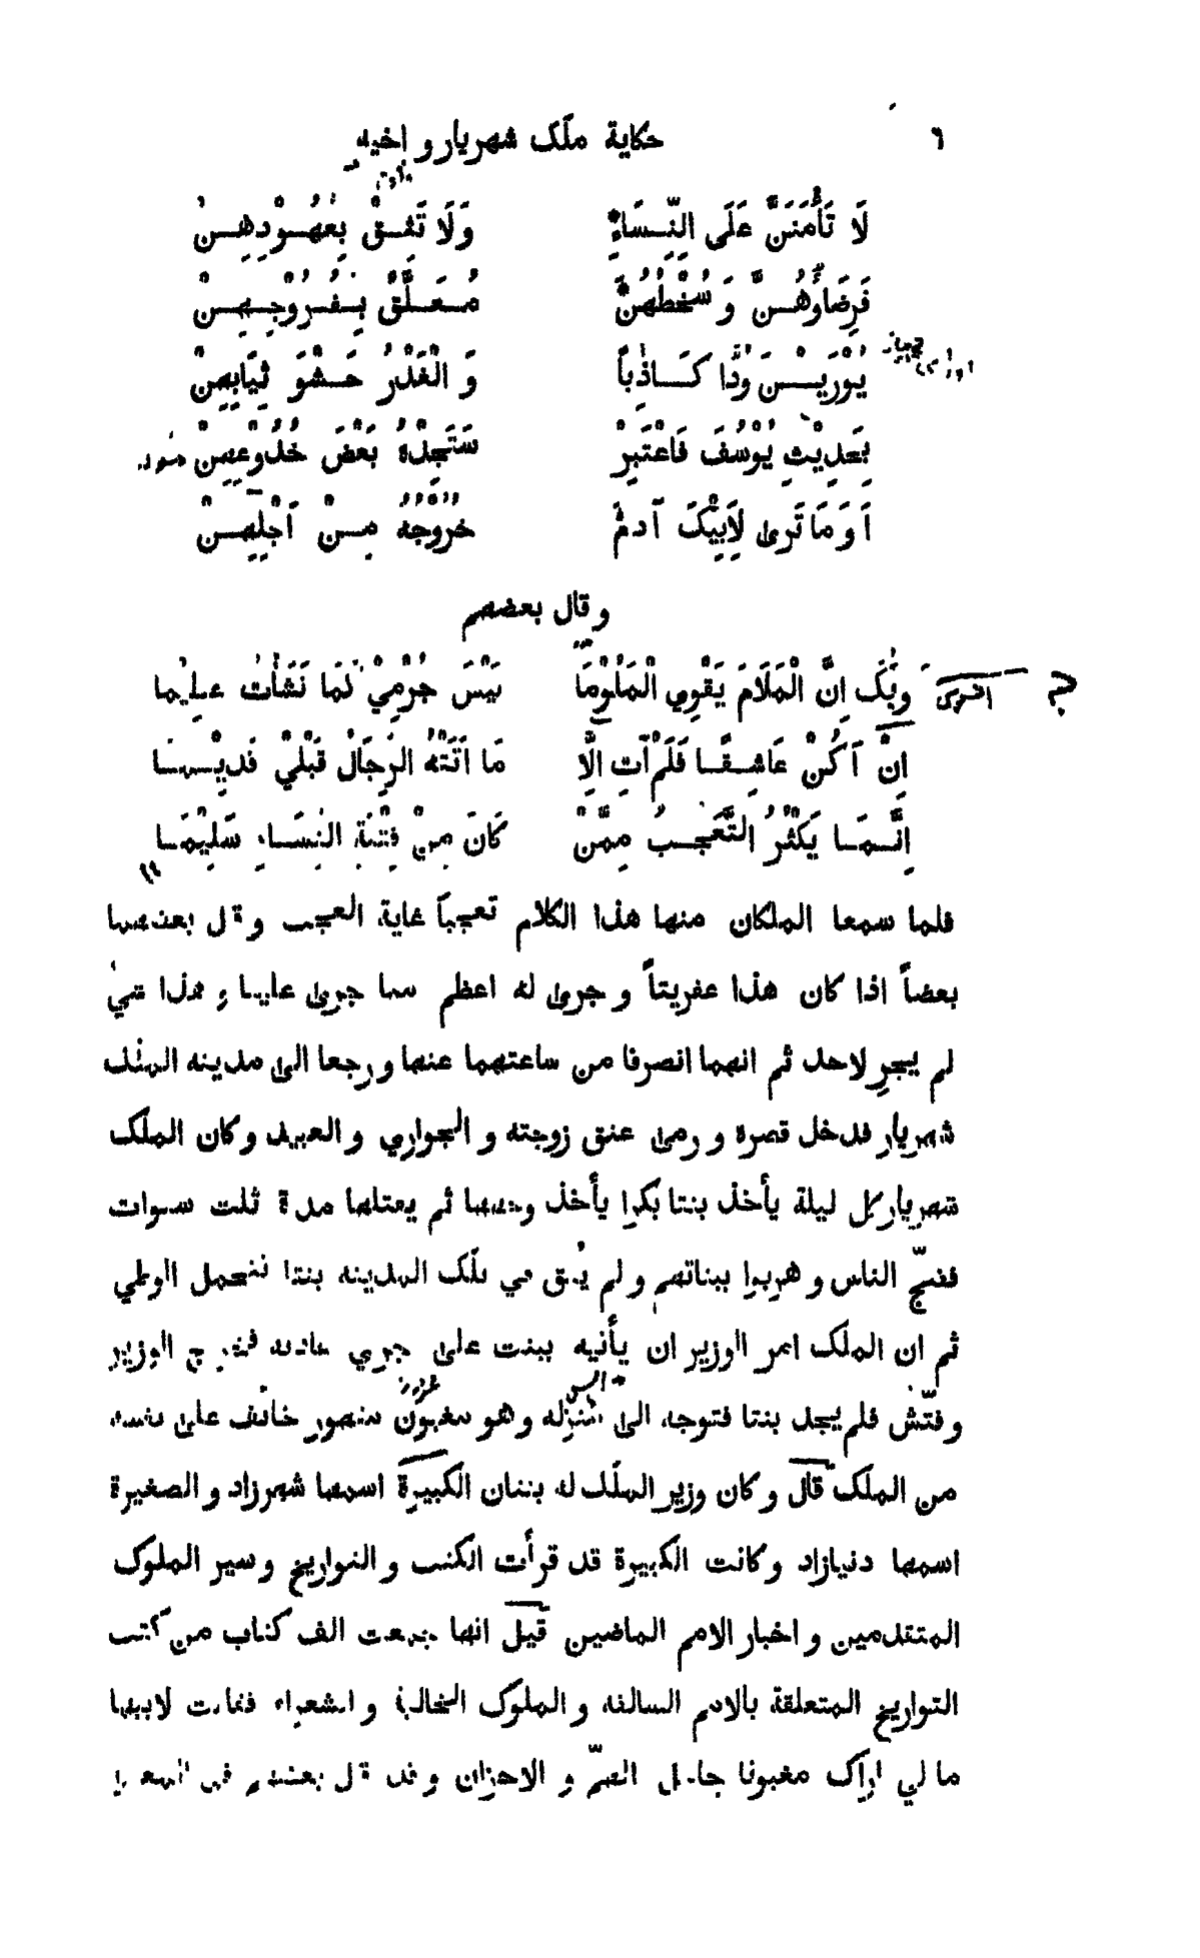 ٦ حكاية ملك شهريار و اخيه
لَا تَأْمَنَنَّ عَلَى النِّسَاءِ وَلَا تَثِقْ بِعُهُوْدِهِنْ
فَرِضَاؤُهُنَّ وَ سُخْطُهُنَّ مُعَلَّقٌ بِفُرُوْجِهِنْ
يُوْرِيْنَ وُدًّا كَاذِباً وَ الْغَدْرُ حَشْوُ ثِيَابِهِنْ
بِحَدِيْثِ يُوْسُفَ فَاعْتَبِرْ سَتَجِدْهُ بَعْضَ خُدُوْعِهِنْ
اَوَ مَا تَرى لِاَبِيْكَ آدمٌ خُرُوْجُهُ مِنْ اَجْلِهِنْ
و قال بعضهم
ويْكَ اِنَّ الْمَلَامَ يَقْوِي الْمَلُوْمَا لَيْسَ جُرْمِيْ كَمَا نَشَأْت عليما
اِنْ اَكُنْ عَاشِقًا فَلَمْ آتِ اِلَّا مَا اَتَتْهُ الرِجَالُ قَبْلِيْ قديْما
اِنَّمَا يَكْثُرُ التَّعَجُّبُ مِمَّنْ كَانَ مِنْ فِتْنَةِ النِسَاءِ سَلِيْمَا
فلما سمعا الملكان منها هذا الكلام تعجباً غاية العجب و قال بعضهما
بعضاً اذا كان هذا عفريتاً و جرى له اعظم مما جرى علينا و هذا شيٌ
لم يجرِ لاحد ثم انهما انصرفا من ساعتهما عنها و رجعا الى مدينه الملك
شهريار فدخل قصره و رمى عنق زوجته و الجواري و العبيد و كان الملك
شهريار كل ليلة يأخذ بنتا بكرا يأخذ وجهها ثم يقتلها مدة ثلث سنوات
فضجّ الناس و هربوا ببناتهم و لم يُبق في تلك المدينه بنتا تتحمل الوطي
ثم ان الملك امر الوزير ان يأتيه ببنت على جري عادته فخرج الوزير
و فتّش فلم يجد بنتا فتوجه الى منزله و هو مغبون مقهور خائف على نفسه
من الملك قال و كان وزير الملك له بنتان الكبيرة اسمها شهرزاد و الصغيرة
اسمها دنيازاد و كانت الكبيرة قد قرأت الكتب و التواريخ و سير الملوك
المتقدمين و اخبار الامم الماضين قيل انها جمعت الف كتاب من كتب
التواريخ المتعلقة بالامم السالفه و الملوك الخالية و الشعراء فقالت لابيها
ما لي اراك مغبونا حامل الهمّ و الاحزان و قد قال بعضهم في المعنى